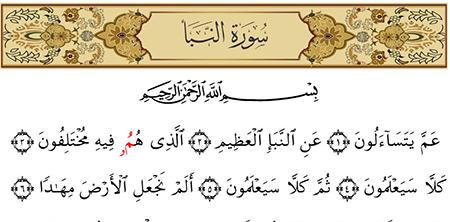 سُورَةُ النَّبَإِ
بِسْمِ اللَّهِ الرَّحْمَٰنِ الرَّحِيمِ
عَمَّ يَتَسَآءَلُونَ ﴿١﴾ عَنِ النَّبَإِ الْعَظِيمِ ﴿٢﴾ الَّذِى هُمُۥ فِيهِ مُخْتَلِفُونَ ﴿٣﴾
كَلَّا سَيَعْلَمُونَ ﴿٤﴾ ثُمَّ كَلَّا سَيَعْلَمُونَ ﴿٥﴾ أَلَمْ نَجْعَلِ الْأَرْضَ مِهَٰدًا ﴿٦﴾